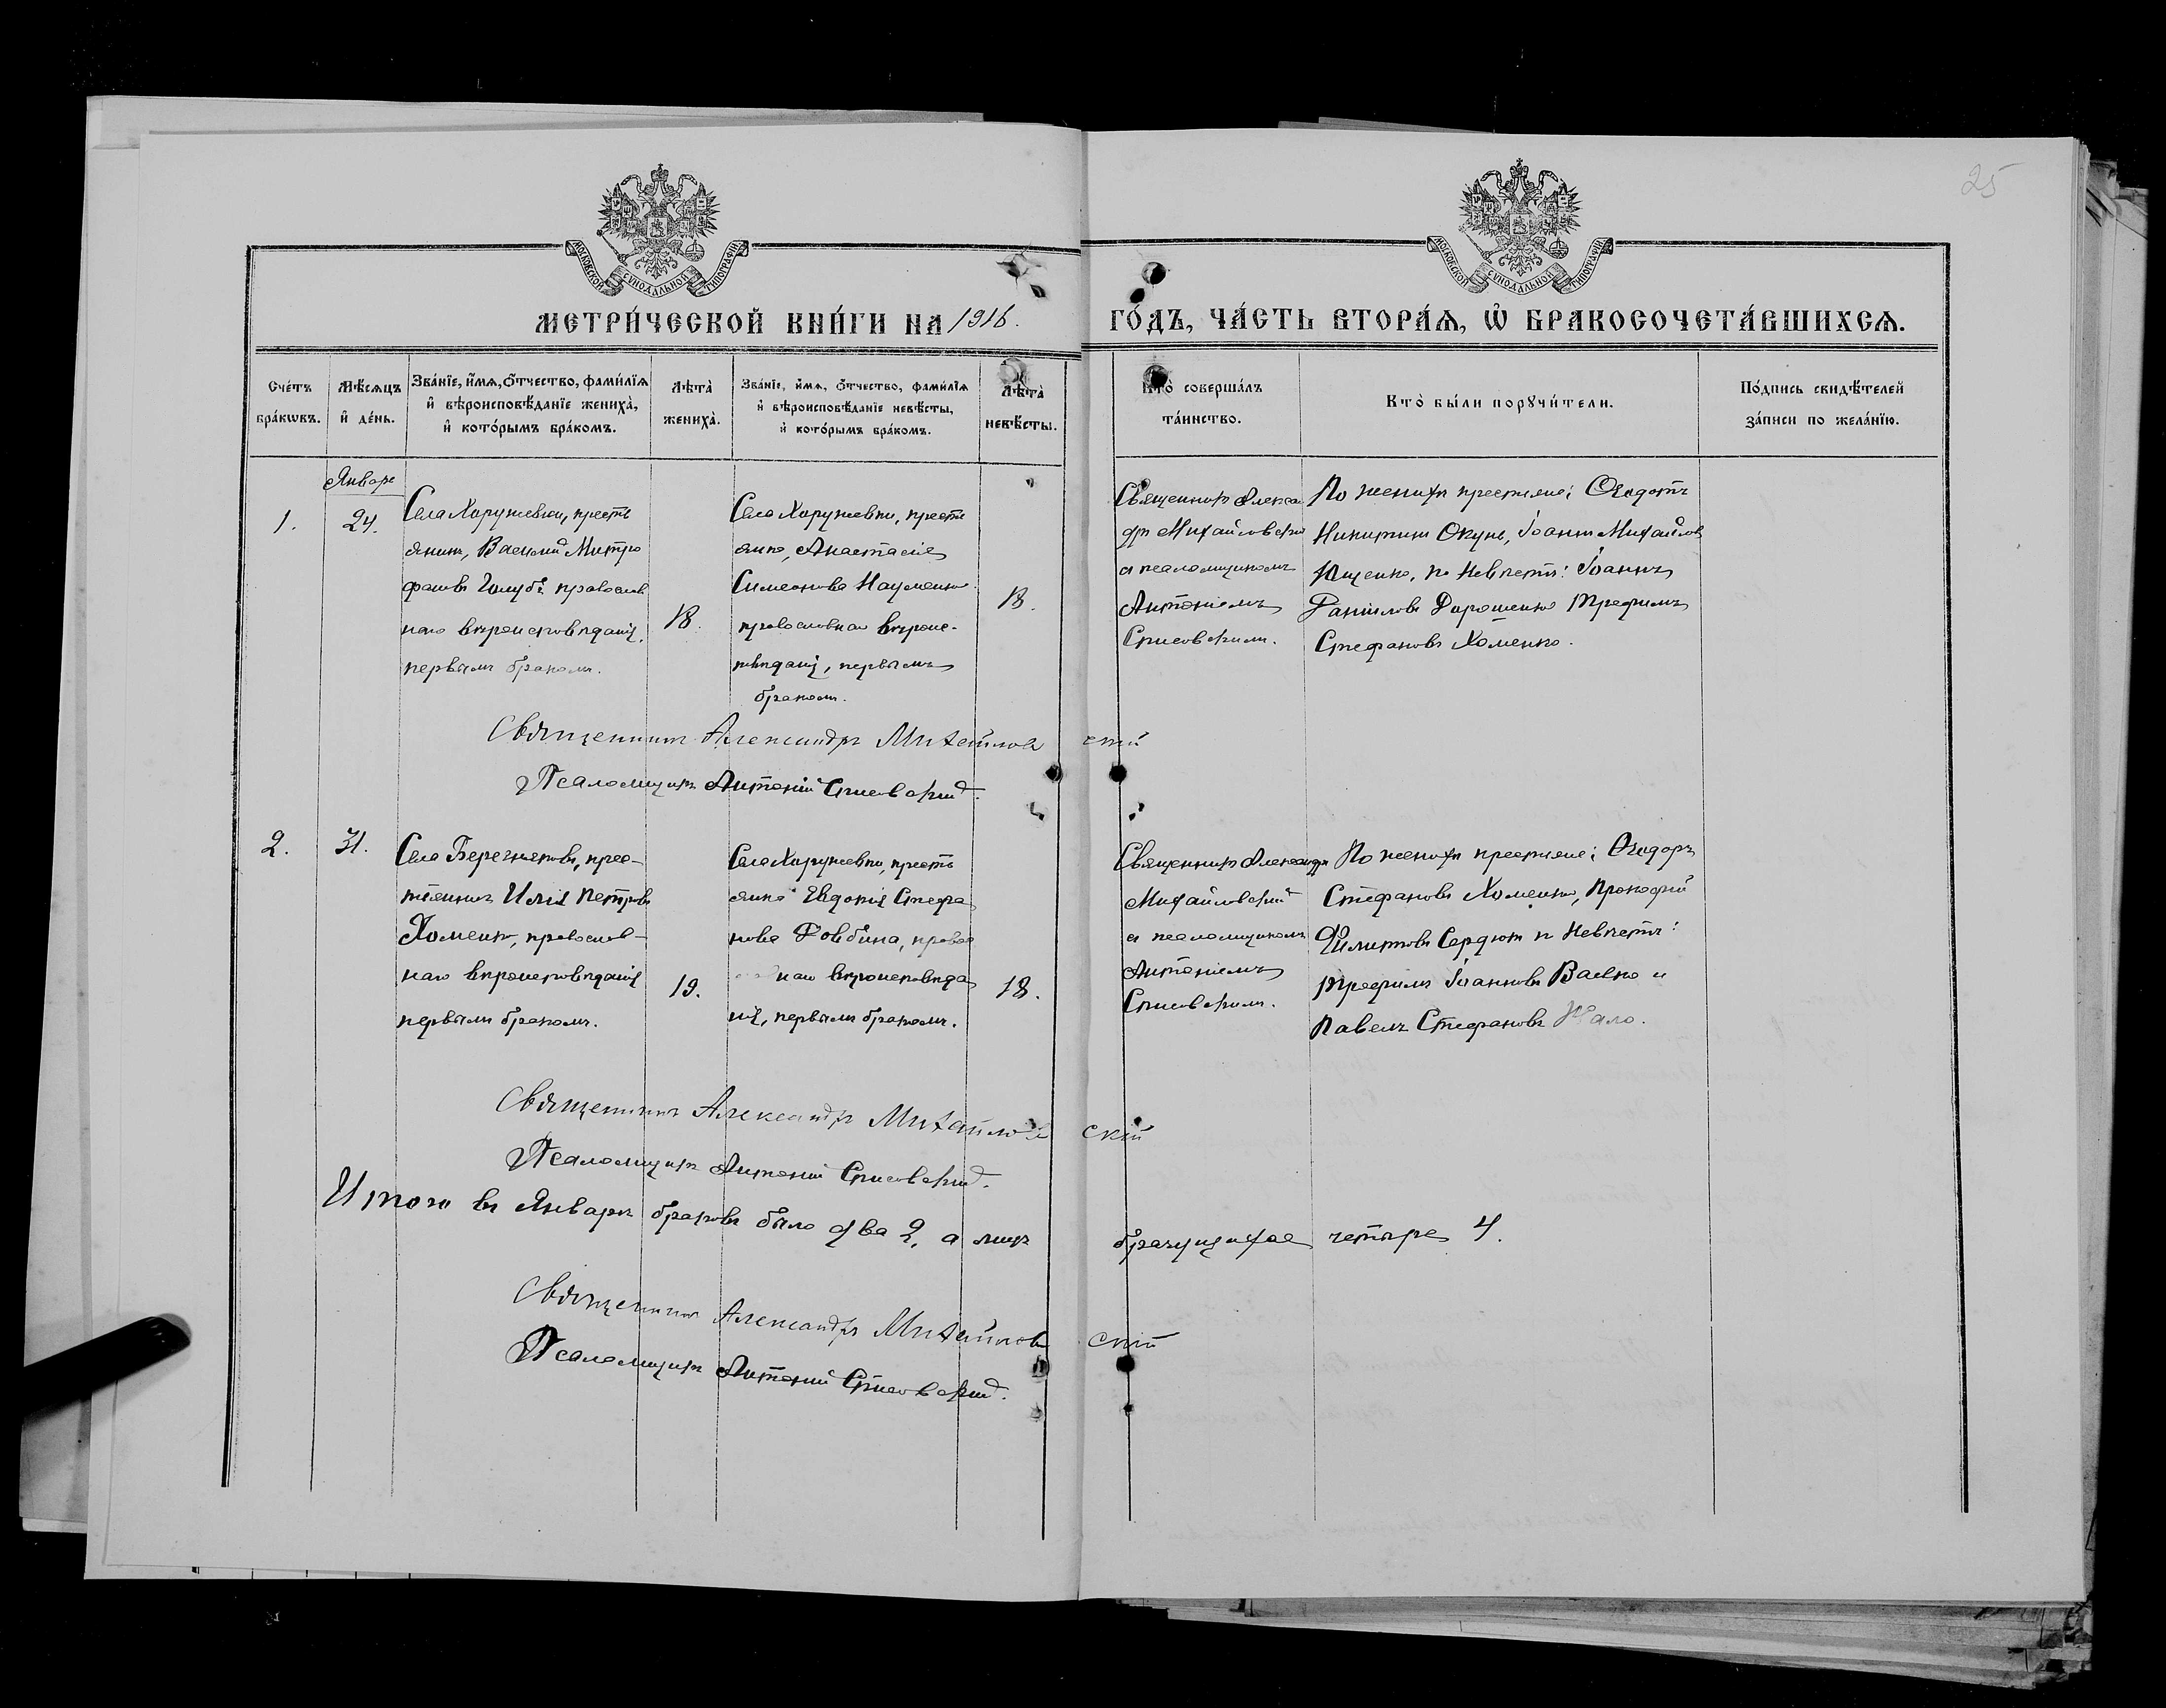 25
МОСКОВСКОЙ СѴНОДАЛЬНОЙ ТИПОГРАФІИ
МОСКОВСКОЙ СѴНОДАЛЬНОЙ ТИПОГРАФІИ
МЕТРИ́ЧЕСКОЙ КНИ́ГИ НА 1916. ГО́ДЪ, ЧА́СТЬ ВТОРА́Ѧ, Ѡ҆ БРАКОСОЧЕТА́ВШИХСѦ.
Сче́тъ бра́кѡвъ.
Мѣ́сѧцъ и҆ де́нь.
Зва́нїе, и҆́мѧ, ѻ҆́тчество, фами́лїѧ
и҆ вѣроисповѣ́данїе жениха̀,
и҆ кото́рымъ бра́комъ.
Лѣта̀ жениха̀.
Зва́нїе, и҆́мѧ, ѻ҆́тчество, фами́лїѧ
и҆ вѣроисповѣ́данїе невѣ́сты,
и҆ кото́рымъ бра́комъ.
Лѣта̀ невѣ́сты.
Кто̀ соверша́лъ
та́инство.
Кто̀ бы́ли порꙋчи́тели.
По́дпись свидѣ́телей
за́писи по жела́нїю.
Январь
1.
24.
Села Харужевки, кресть
янинъ, Василій Митро
фановъ Голубъ православ
наго вѣроисповѣданія,
первымъ бракомъ.
18.
Села Харужевки, кресть
янка, Анастасія
Симеонова Науменко
православнаго вѣроис-
повѣданія, первымъ
бракомъ.
18.
Священникъ Алекса
ндръ Михайловскій
съ псаломщикомъ
Антоніемъ
По женихѣ крестьяне: Ѳеодотъ
Никитинъ Окунь, Іоаннъ Михайловъ
Ющенко, по невѣстѣ: Іоаннъ
Даніиловъ Дорошенко Трофимъ
Стефановъ Хоменко.
Священникъ Александръ Михайловскій
Псаломщикъ Антоній
2.
31.
Села Березняковъ, крес-
тьянинъ Илія Петровъ
Хоменко, православ-
наго вѣроисповѣданія
первымъ бракомъ.
19.
Села Харужевки, кресть
янка Евдокія Стефа
нова Довбина, правос
наго вѣроисповѣда
нія, первымъ бракомъ.
18.
Священникъ Александръ
Михайловскій
съ псаломщикомъ
Антоніемъ
По женихѣ крестьяне: Ѳеодоръ
Стефановъ Хоменко, Прокофій
Сердюкъ по невѣстѣ:
Трофимъ Іоанновъ Васько и
Павелъ Стефановъ
Священникъ Александръ Михайловскій
Псаломщикъ Антоній
Итого въ Январѣ браковъ было два 2, а лицъ брачущихся четыре 4.
Священникъ Александръ Михайловскій
Псаломщикъ Антоній